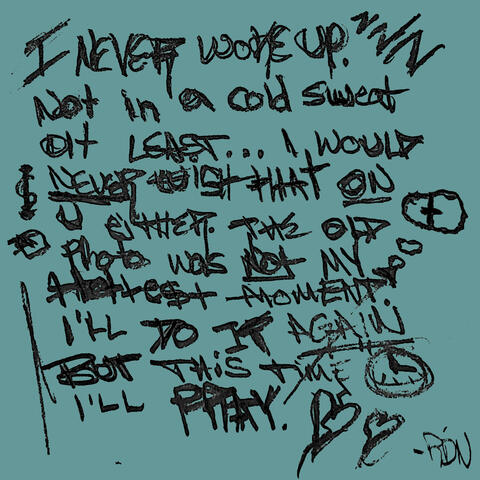 I NEVER WOKE UP. ZNN
Not in a cold sweat
at LEAST... I WOULD
NEVER WISH THAT ON
U EITHER. THE OLD
Photo was NOT MY
Hottest MOMENT.
I'LL DO IT AGAIN
BUT THIS TIME
I'LL PRAY.
-RDN